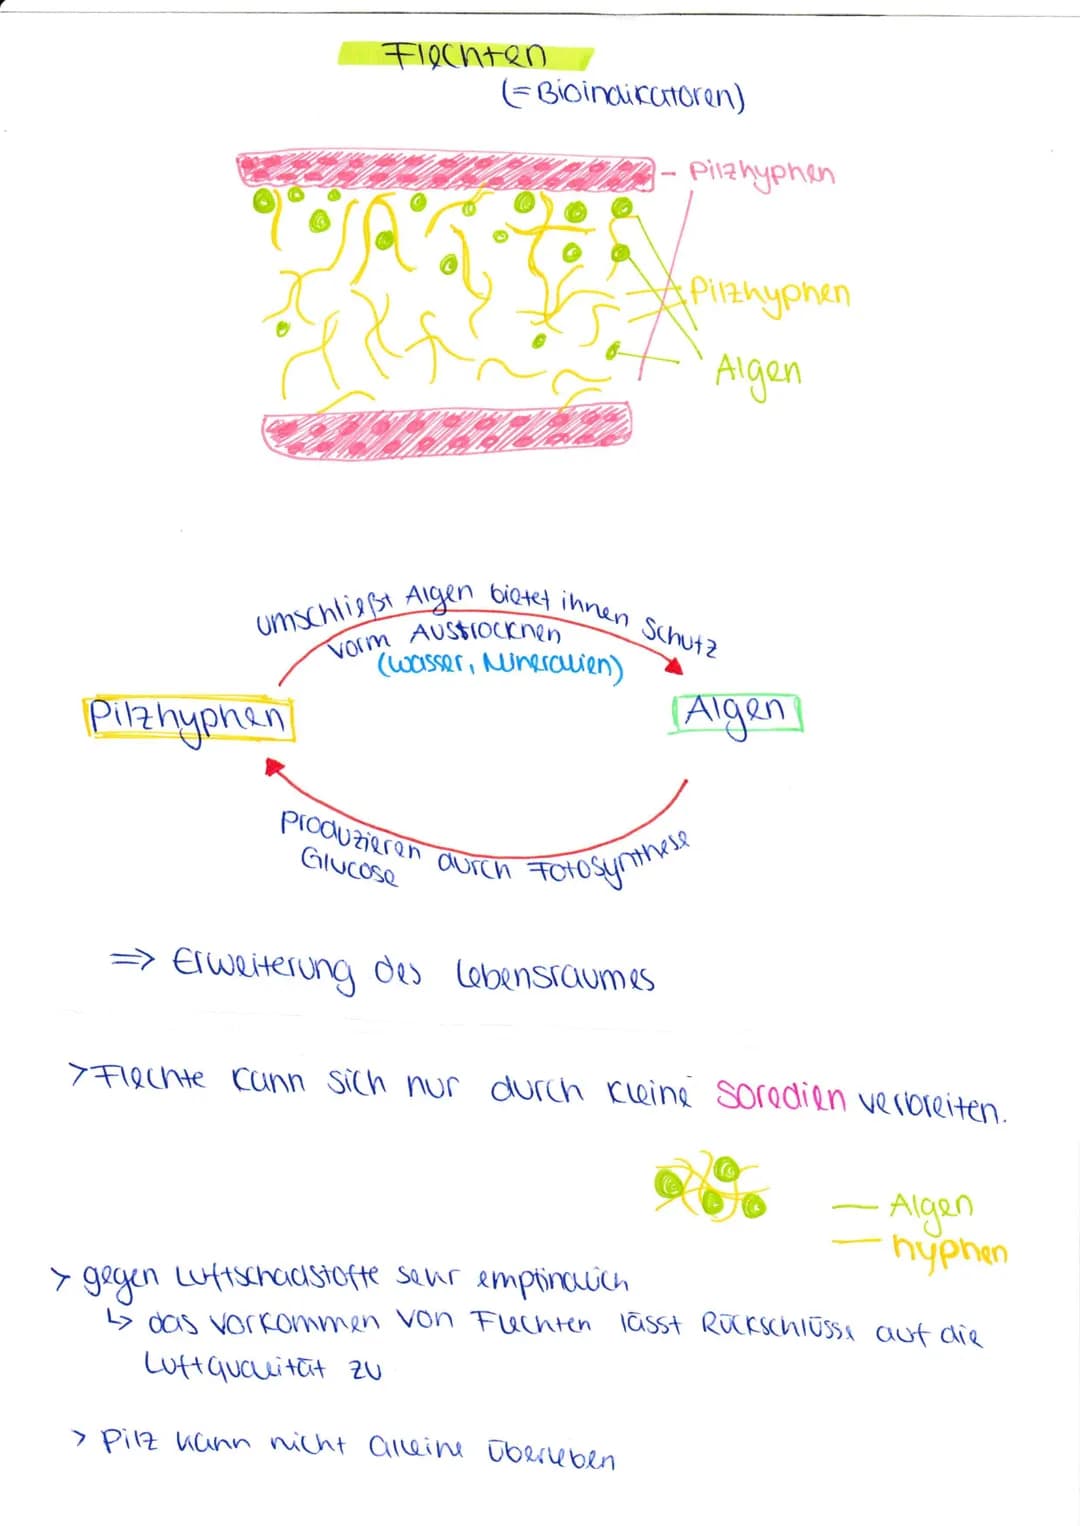 Flechten
(=Bioindikatoren)
- Pilzhyphen
Pilzhyphen
Algen
umschließt Algen bietet ihnen Schutz
vorm Austrocknen
(Wasser, Mineralien)
Pilzhyphen
Algen
Produzieren durch Fotosynthese
Glucose
=> Erweiterung des Lebensraumes
> Flechte kann sich nur durch kleine Soredien verbreiten.
— Algen
— hyphen
> gegen Luftschadstoffe sehr empfindlich
↳ das Vorkommen von Flechten lässt Rückschlüsse auf die
Luftqualität zu
> Pilz kann nicht alleine überleben